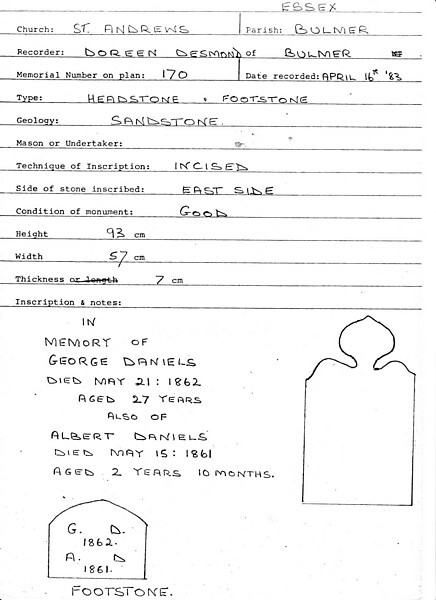 ESSEX
Church: ST. ANDREWS Parish: BULMER
Recorder: DOREEN DESMOND of BULMER
Memorial Number on plan: 170 Date recorded: APRIL 16th '83
Type: HEADSTONE & FOOTSTONE
Geology: SANDSTONE.
Mason or Undertaker:
Technique of Inscription: INCISED
Side of stone inscribed: EAST SIDE
Condition of monument: GOOD
Height 93 cm
Width 57 cm
Thickness or length 7 cm
Inscription & notes:
IN
MEMORY OF
GEORGE DANIELS
DIED MAY 21: 1862
AGED 27 YEARS
ALSO OF
ALBERT DANIELS
DIED MAY 15: 1861
AGED 2 YEARS 10 MONTHS.
G. D.
1862.
A. D
1861.
FOOTSTONE.